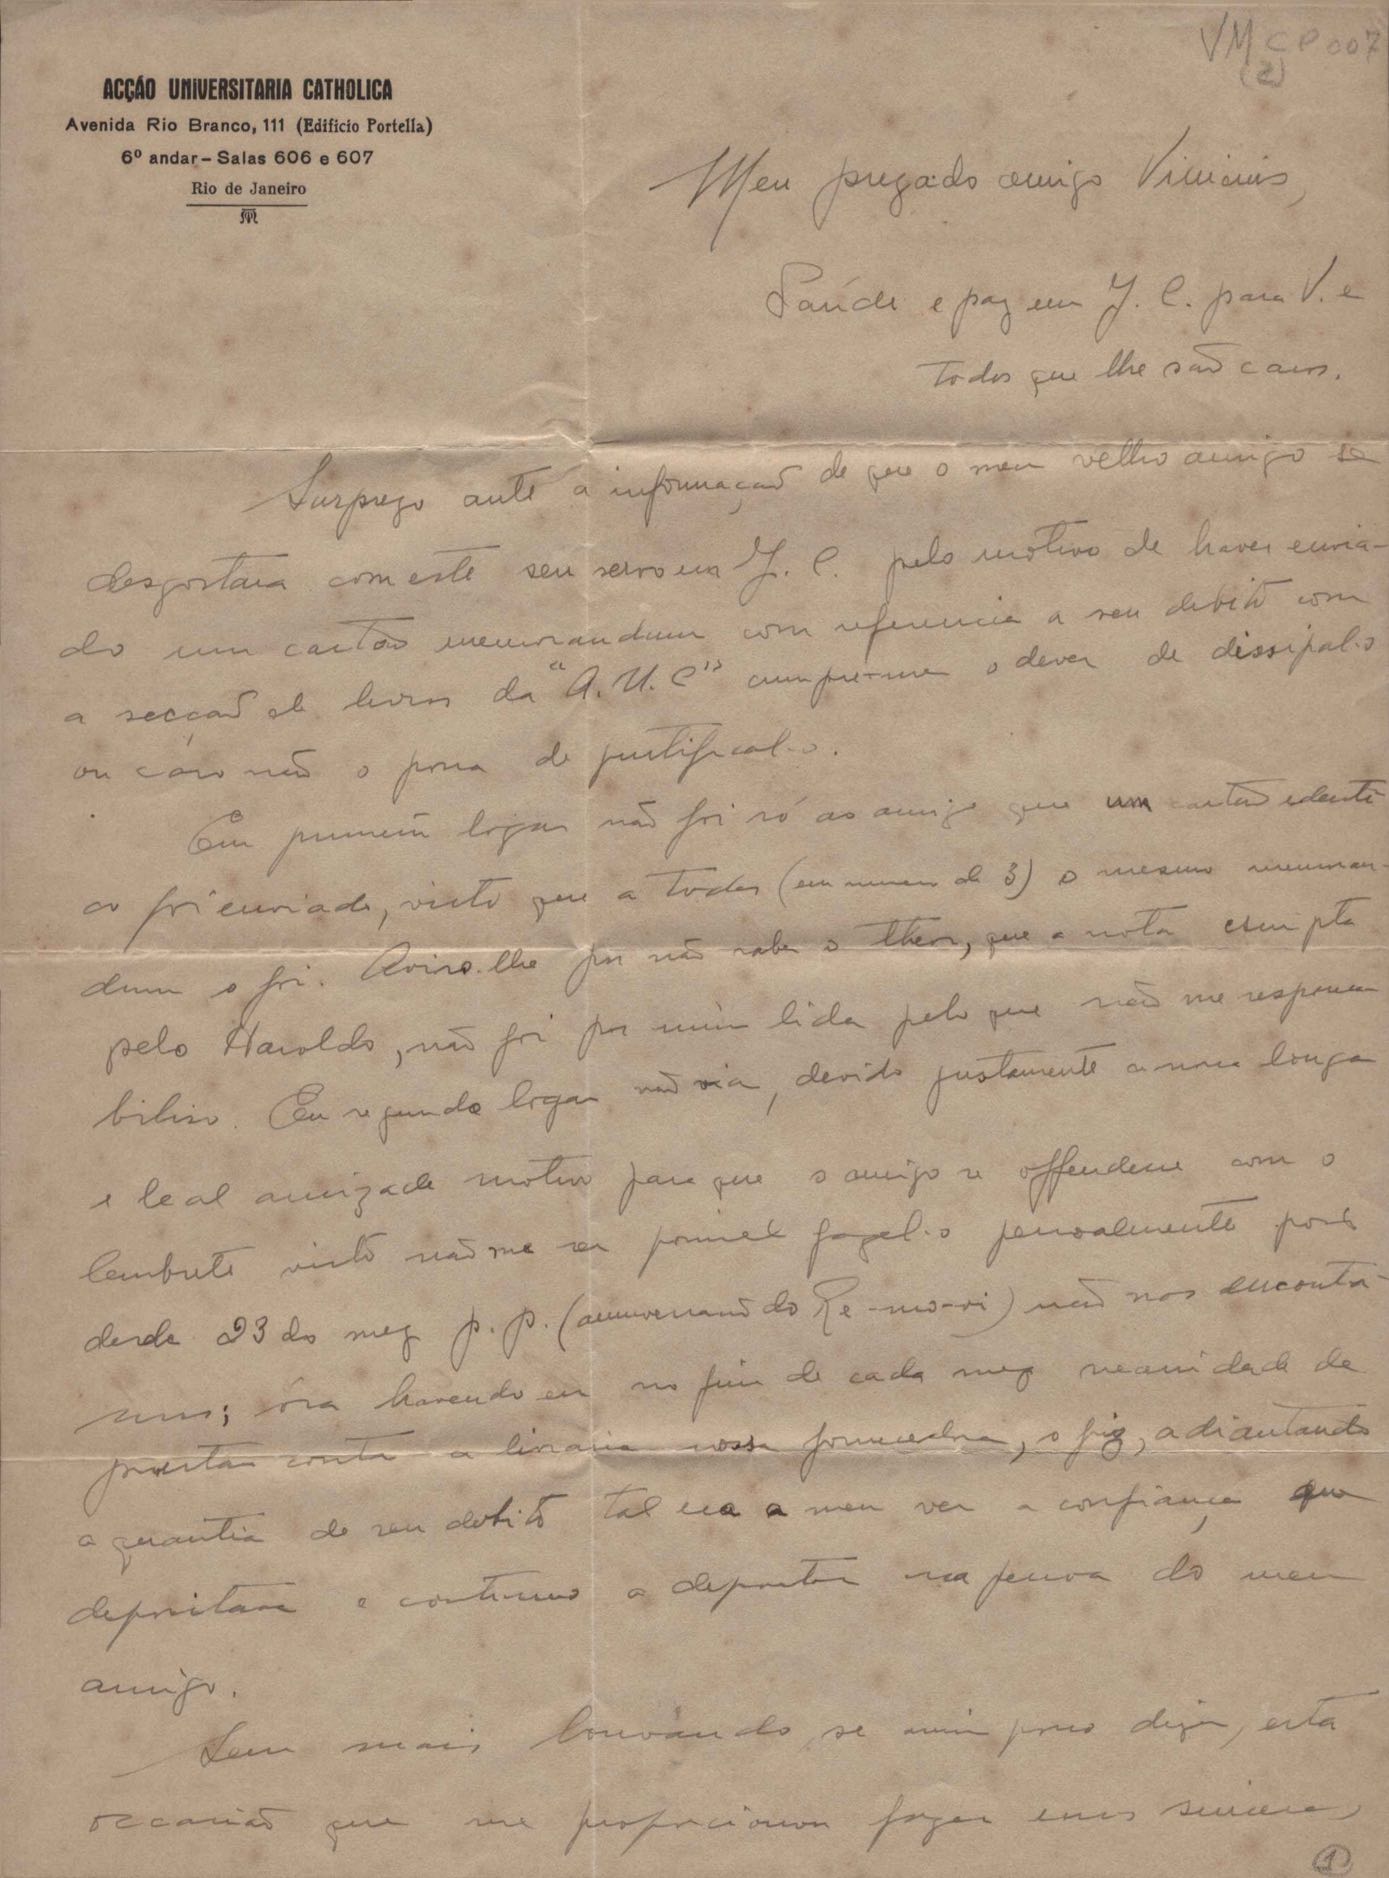 VMCP007
(2)
ACÇÃO UNIVERSITARIA CATHOLICA
Avenida Rio Branco, 111 (Edificio Portella)
6º andar – Salas 606 e 607
Rio de Janeiro
Meu prezado amigo Vinicius,
Saúde e paz em J. C. para V. e
todos que lhe são caros.
Surprezo ante a informação de que o meu velho amigo se
desgostara com este seu servo em J. C. pelo motivo de haver envia-
do um cartão memorandum com referencia a seu debito com
a secção de livros da "A. U. C" cumpre-me o dever de dissipal-o
ou caso não o possa de justifical-o.
Em primeiro logar não foi só ao amigo que um cartão identi
co foi enviado, visto que a todos (em numero de 3) o mesmo memoran-
dum o foi. Aviso-lhe por não saber o theor, que a nota escripta
pelo Haroldo, não foi por mim lida pelo que não me responsa
biliso. Em segundo logar não via, devido justamente a nossa longa
e leal amizade motivo para que o amigo se offendesse com o
lembrete visto não me ser possivel fazel-o pessoalmente pois
desde 23 do mez p. p. (anniversario do ) não nos encontra-
mos; óra havendo eu no fim de cada mez necessidade de
prestar conta a livraria nossa fornecedora, o fiz, adiantando
a garantia de seu debito tal era a meu ver a confiança que
depositara e continuo a depositar na pessoa do meu
amigo.
Sem mais louvando, se assim posso dizer, esta
occasião que me proporcionou fazer esses sinceros
1